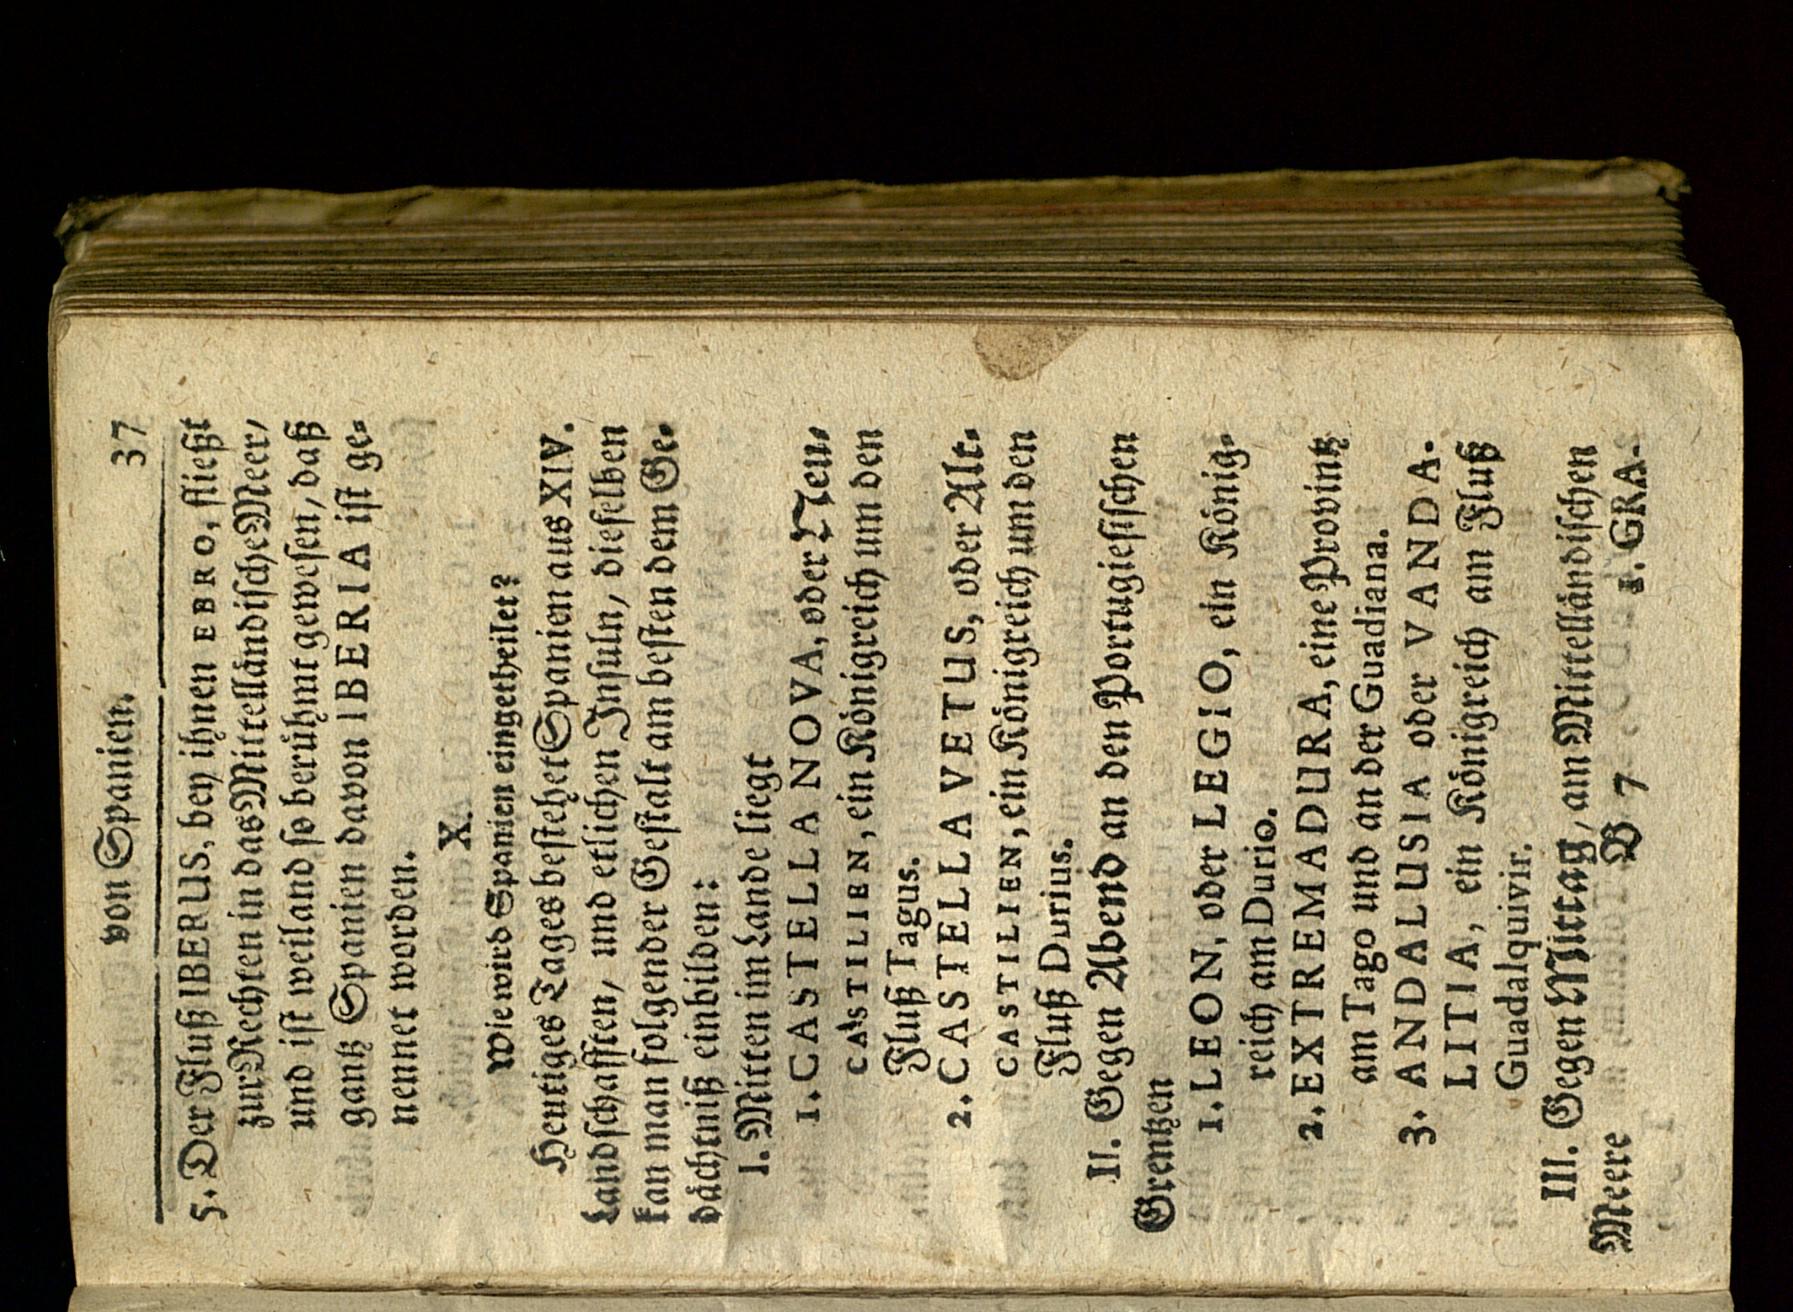 von Spanien. 37
5. Der Fluß IBERUS, bey ihnen EBRO, fließt
zur Rechten in das Mittelländische Meer/
und ist weiland so berühmt gewesen/ daß
gantz Spanien davon IBERIA ist ge-
nennet worden.
X.
Wie wird Spanien eingetheilet?
Heutiges Tages bestehet Spanien aus XIV.
Landschafften/ und etlichen Insuln/ dieselben
kan man folgender Gestalt am besten dem Ge-
dächtniß einbilden:
I. Mitten im Lande liegt
1. CASTELLA NOVA, oder Neu-
CASTILIEN, ein Königreich um den
Fluß Tagus.
2. CASTELLA VETUS, oder Alt-
CASTILIEN, ein Königreich um den
Fluß Durius.
II. Gegen Abend an den Portugiesischen
Grentzen
1. LEON, oder LEGIO, ein König-
reich am Durio.
2. EXTREMADURA, eine Provintz
am Tago und an der Guadiana.
3. ANDALUSIA oder VANDA-
LITIA, ein Königreich am Fluß
Guadalquivir.
III. Gegen Mittag/ am Mittelländischen
Meere
B 7 1. GRA-